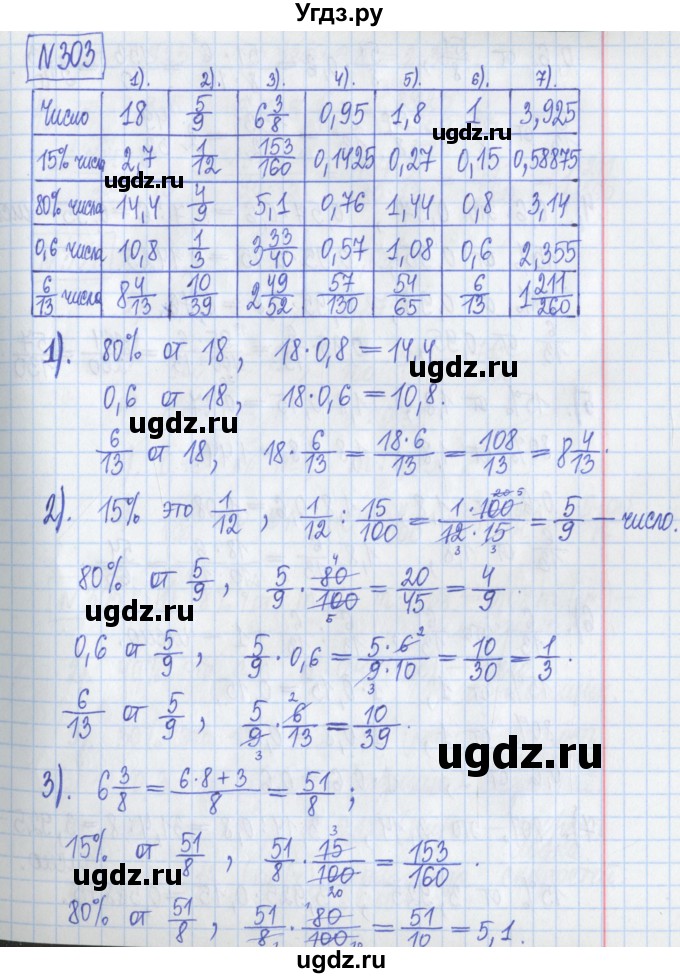 Угдз.ру
N 303
1). 2). 3). 4). 5). 6). 7).
Число 18 5/9 6 3/8 0,95 1,8 1 3,925
ugdz.ru
15% числа 2,7 1/12 153/160 0,1425 0,27 0,15 0,58875
ugdz.ru
80% числа 14,4 4/9 5,1 0,76 1,44 0,8 3,14
ugdz.ru
0,6 числа 10,8 1/3 3 33/40 0,57 1,08 0,6 2,355
6/13 числа 8 4/13 10/39 2 49/52 57/130 54/65 6/13 1 211/260
1). 80% от 18, 18·0,8=14,4
ugdz.ru
0,6 от 18, 18·0,6=10,8.
6/13 от 18, 18·6/13=18·6/13=108/13=8 4/13.
ugdz.ru
2). 15% это 1/12, 1/12:15/100=1·100/12·15=5/9 — число.
20 5
3 3
80% от 5/9, 5/9·80/100=20/45=4/9.
4
5
ugdz.ru
0,6 от 5/9, 5/9·0,6=5·6/9·10=10/30=1/3.
2
3
6/13 от 5/9, 5/9·6/13=10/39.
2
3
ugdz.ru
3). 6 3/8=6·8+3/8=51/8;
15% от 51/8, 51/8·15/100=153/160.
3
20
ugdz.ru
80% от 51/8, 51/8·80/100=51/10=5,1.
ugdz.ru